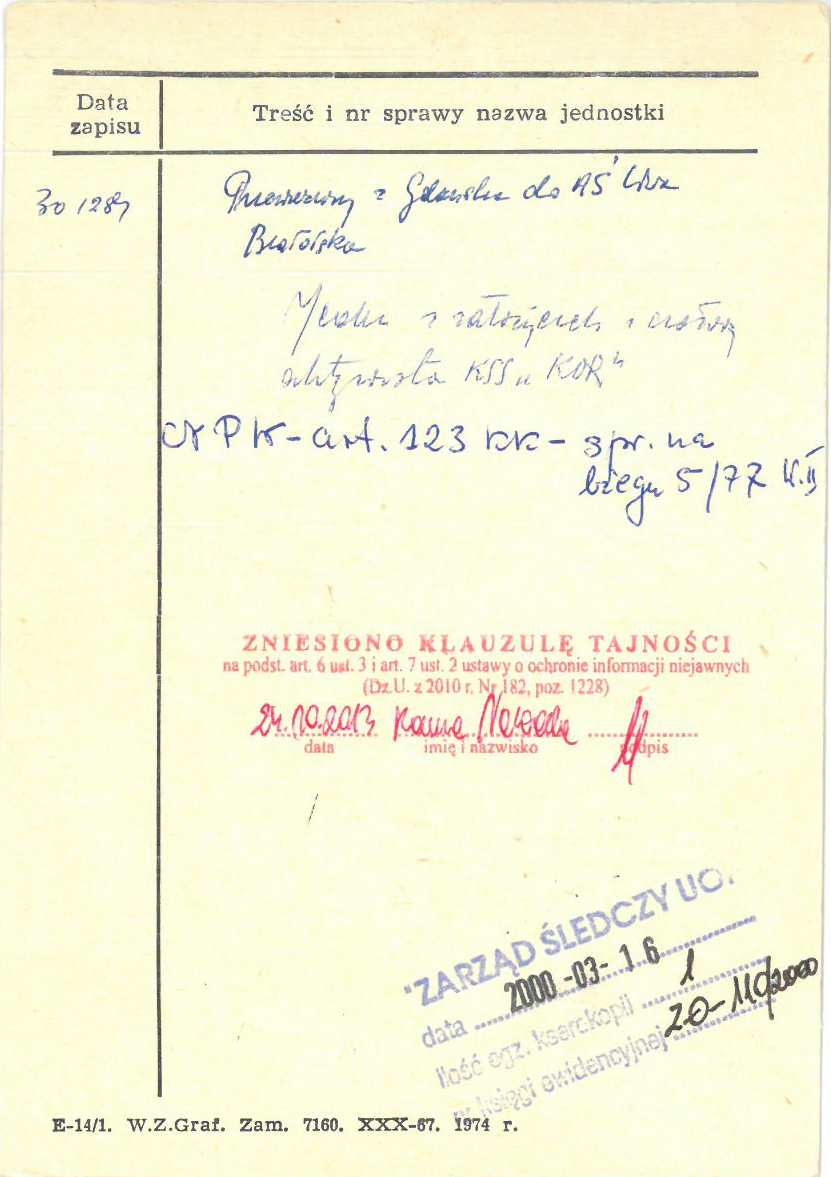 Data zapisu
Treść i nr sprawy nazwa jednostki
30 12 81
Przewieziony z Gdańska do AŚ W-wa
Białołęka
Jeden z założycieli i czołowy
aktywista KSS „KOR"
art. 123 kk - spr. na
biegu 5/77 W.II
ZNIESIONO KLAUZULĘ TAJNOŚCI
na podst. art. 6 ust. 3 i art. 7 ust. 2 ustawy o ochronie informacji niejawnych
(Dz.U. z 2010 r, Nr 182, poz. 1228)
24.10.2013
data imię i nazwisko podpis
"ZARZĄD ŚLEDCZY UO.
data 2000 -03- 16
Ilość egz. kserokopii 1
nr księgi ewidencyjnej 20-110/2000
E-14/1. W.Z.Graf. Zam. 7160. XXX-67. 1974 r.